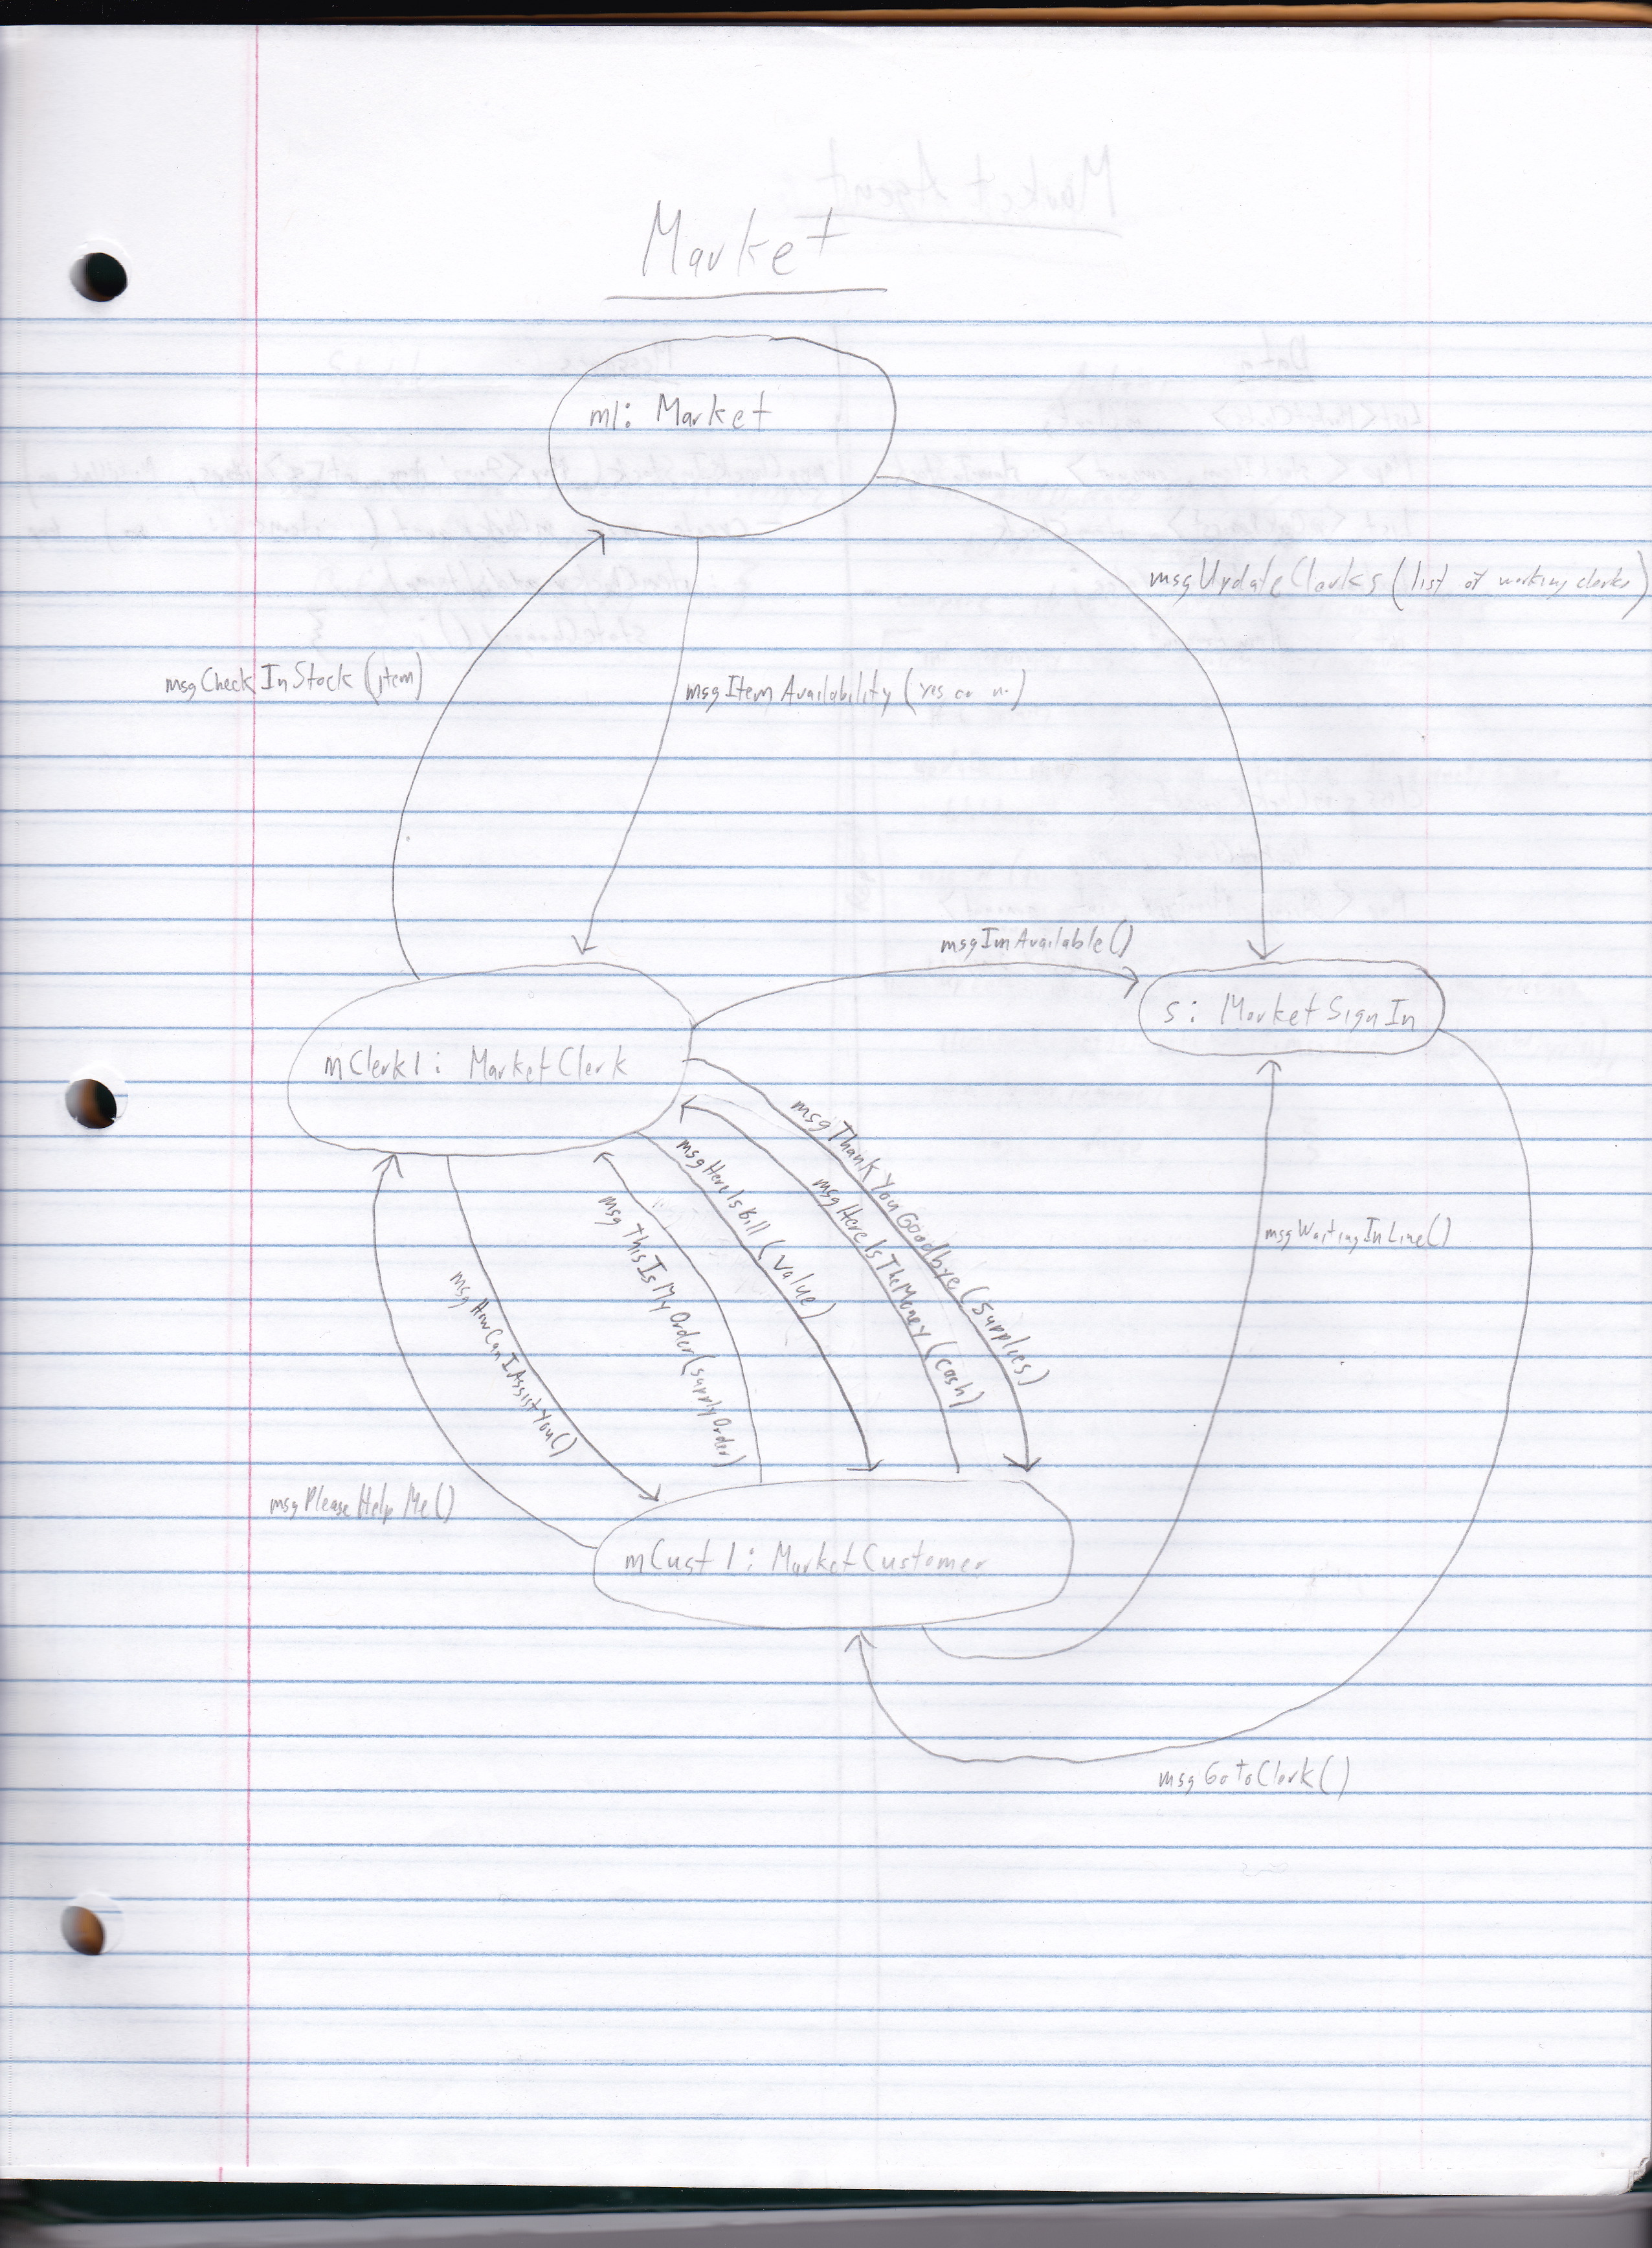 Market
m1: Market
msgUpdateClerks (list of working clerks)
msgCheckInStock (item)
msgItemAvailability (yes or no)
msgImAvailable()
s: MarketSignIn
mClerk1: MarketClerk
msgThankYouGoodbye (supplies)
msgHereIsBill (value)
msgHereIsTheMoney (cash)
msgThisIsMyOrder (supplyOrder)
msgWaitingInLine()
msgHowCanIAssistYou()
msgPleaseHelpMe()
mCust1: MarketCustomer
msgGotoClerk()